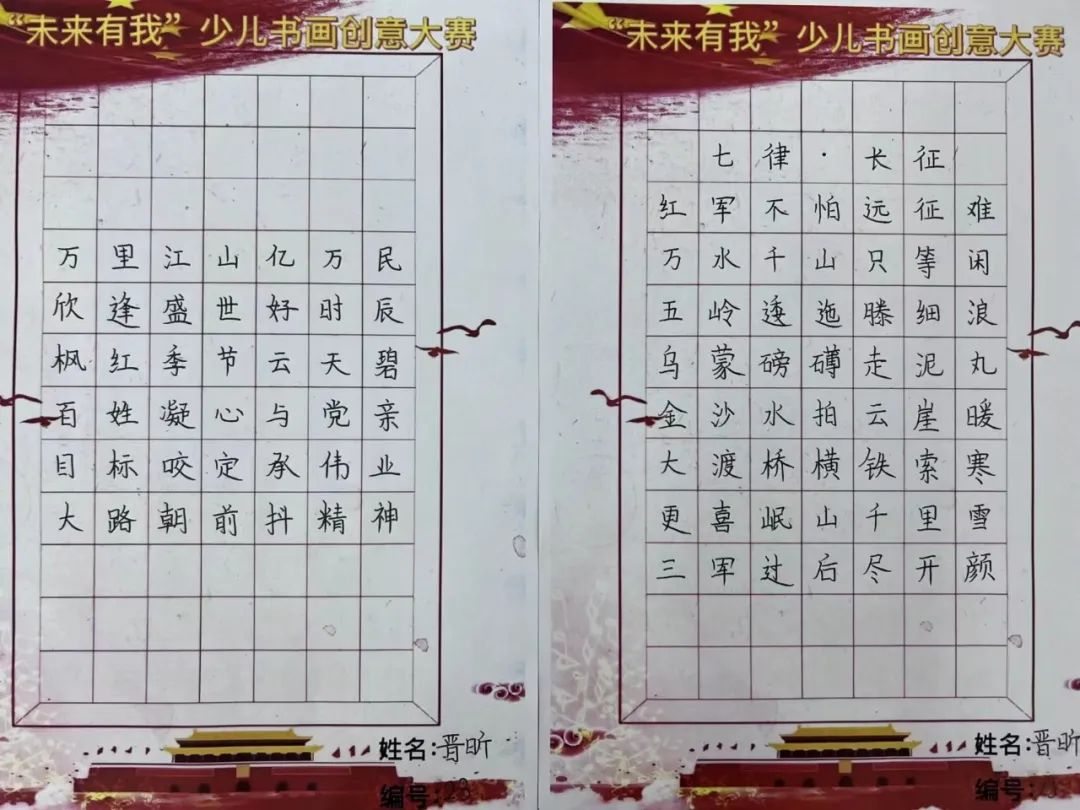 “未来有我”少儿书画创意大赛
万里江山亿万民
欣逢盛世好时辰
枫红季节云天碧
百姓凝心与党亲
目标咬定承伟业
大路朝前抖精神
姓名:晋昕
编号:28
“未来有我”少儿书画创意大赛
七律·长征
红军不怕远征难
万水千山只等闲
五岭逶迤腾细浪
乌蒙磅礴走泥丸
金沙水拍云崖暖
大渡桥横铁索寒
更喜岷山千里雪
三军过后尽开颜
姓名:晋昕
编号: